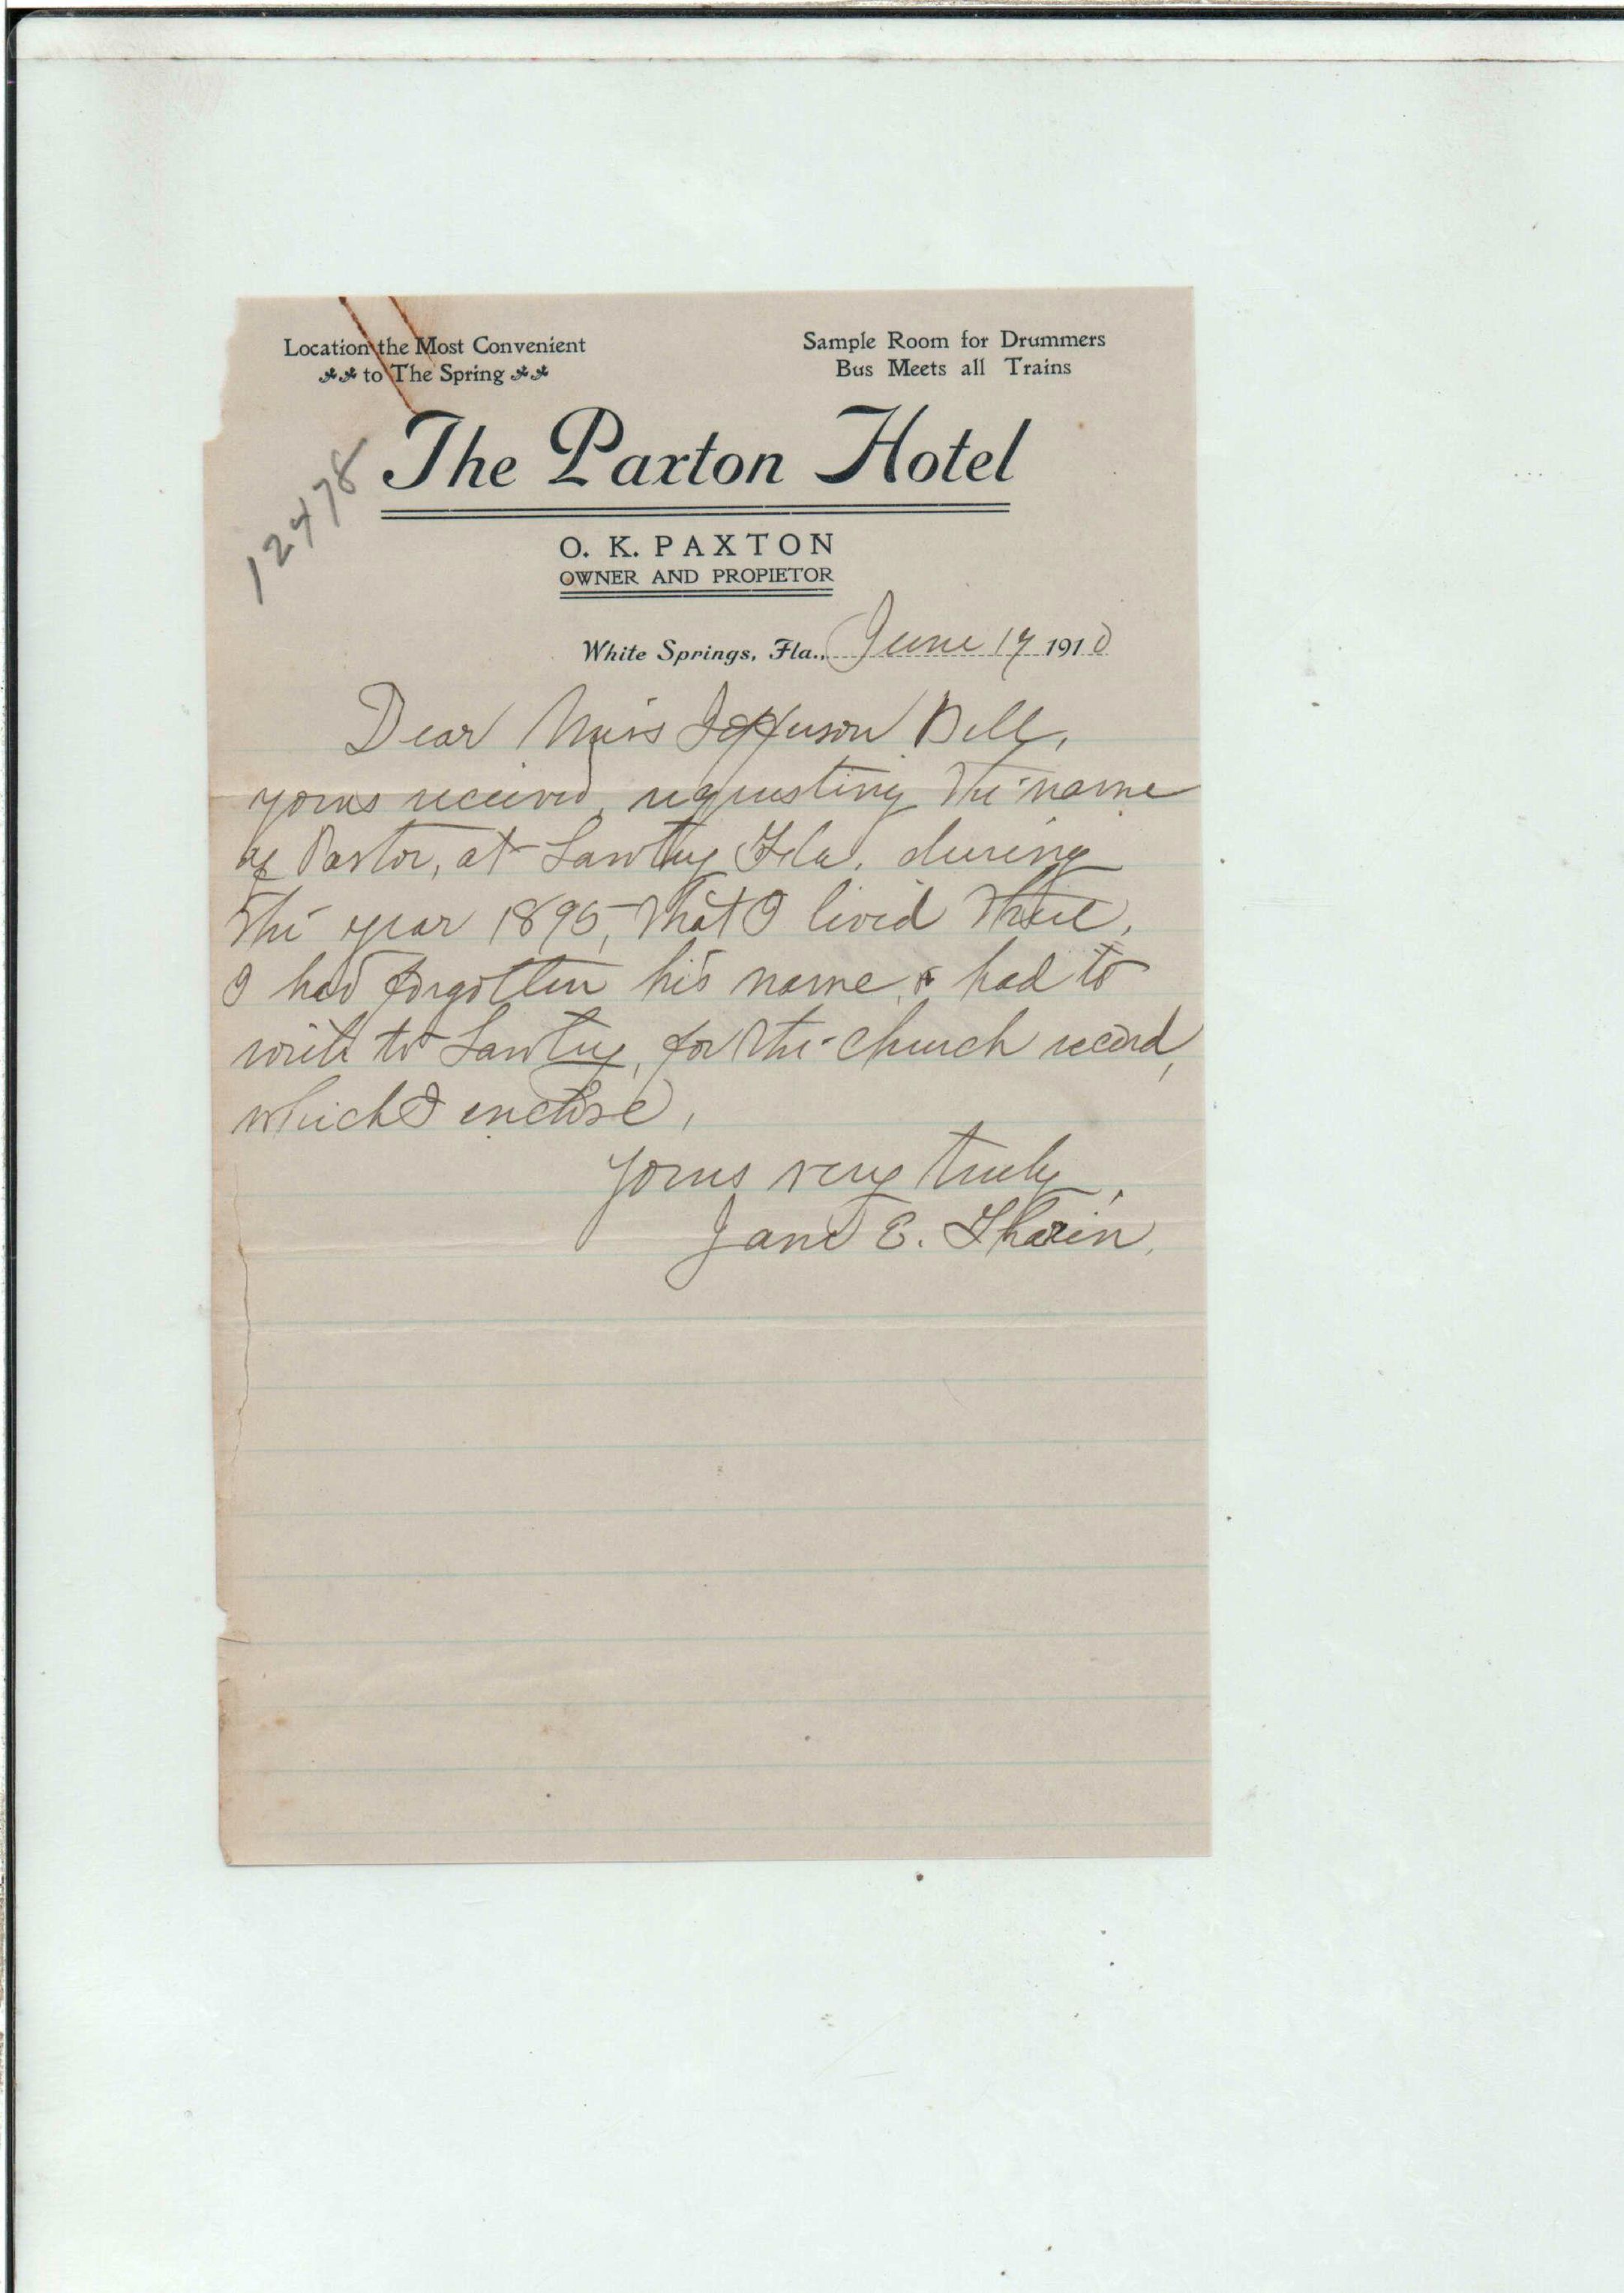 Location the Most Convenient
to The Spring
Sample Room for Drummers
Bus Meets all Trains
The Paxton Hotel
12478
O. K. PAXTON
OWNER AND PROPIETOR
White Springs, Fla., June 17 1910
Dear Miss Jefferson Bell,
yours received, requesting the name
of Pastor, at Lawtey Fla. during
the year 1895, that I lived there.
I had forgotten his name, & had to
write to Lawtey, for the church record,
which I enclose,
yours very truly,
Jane E. Tharin.